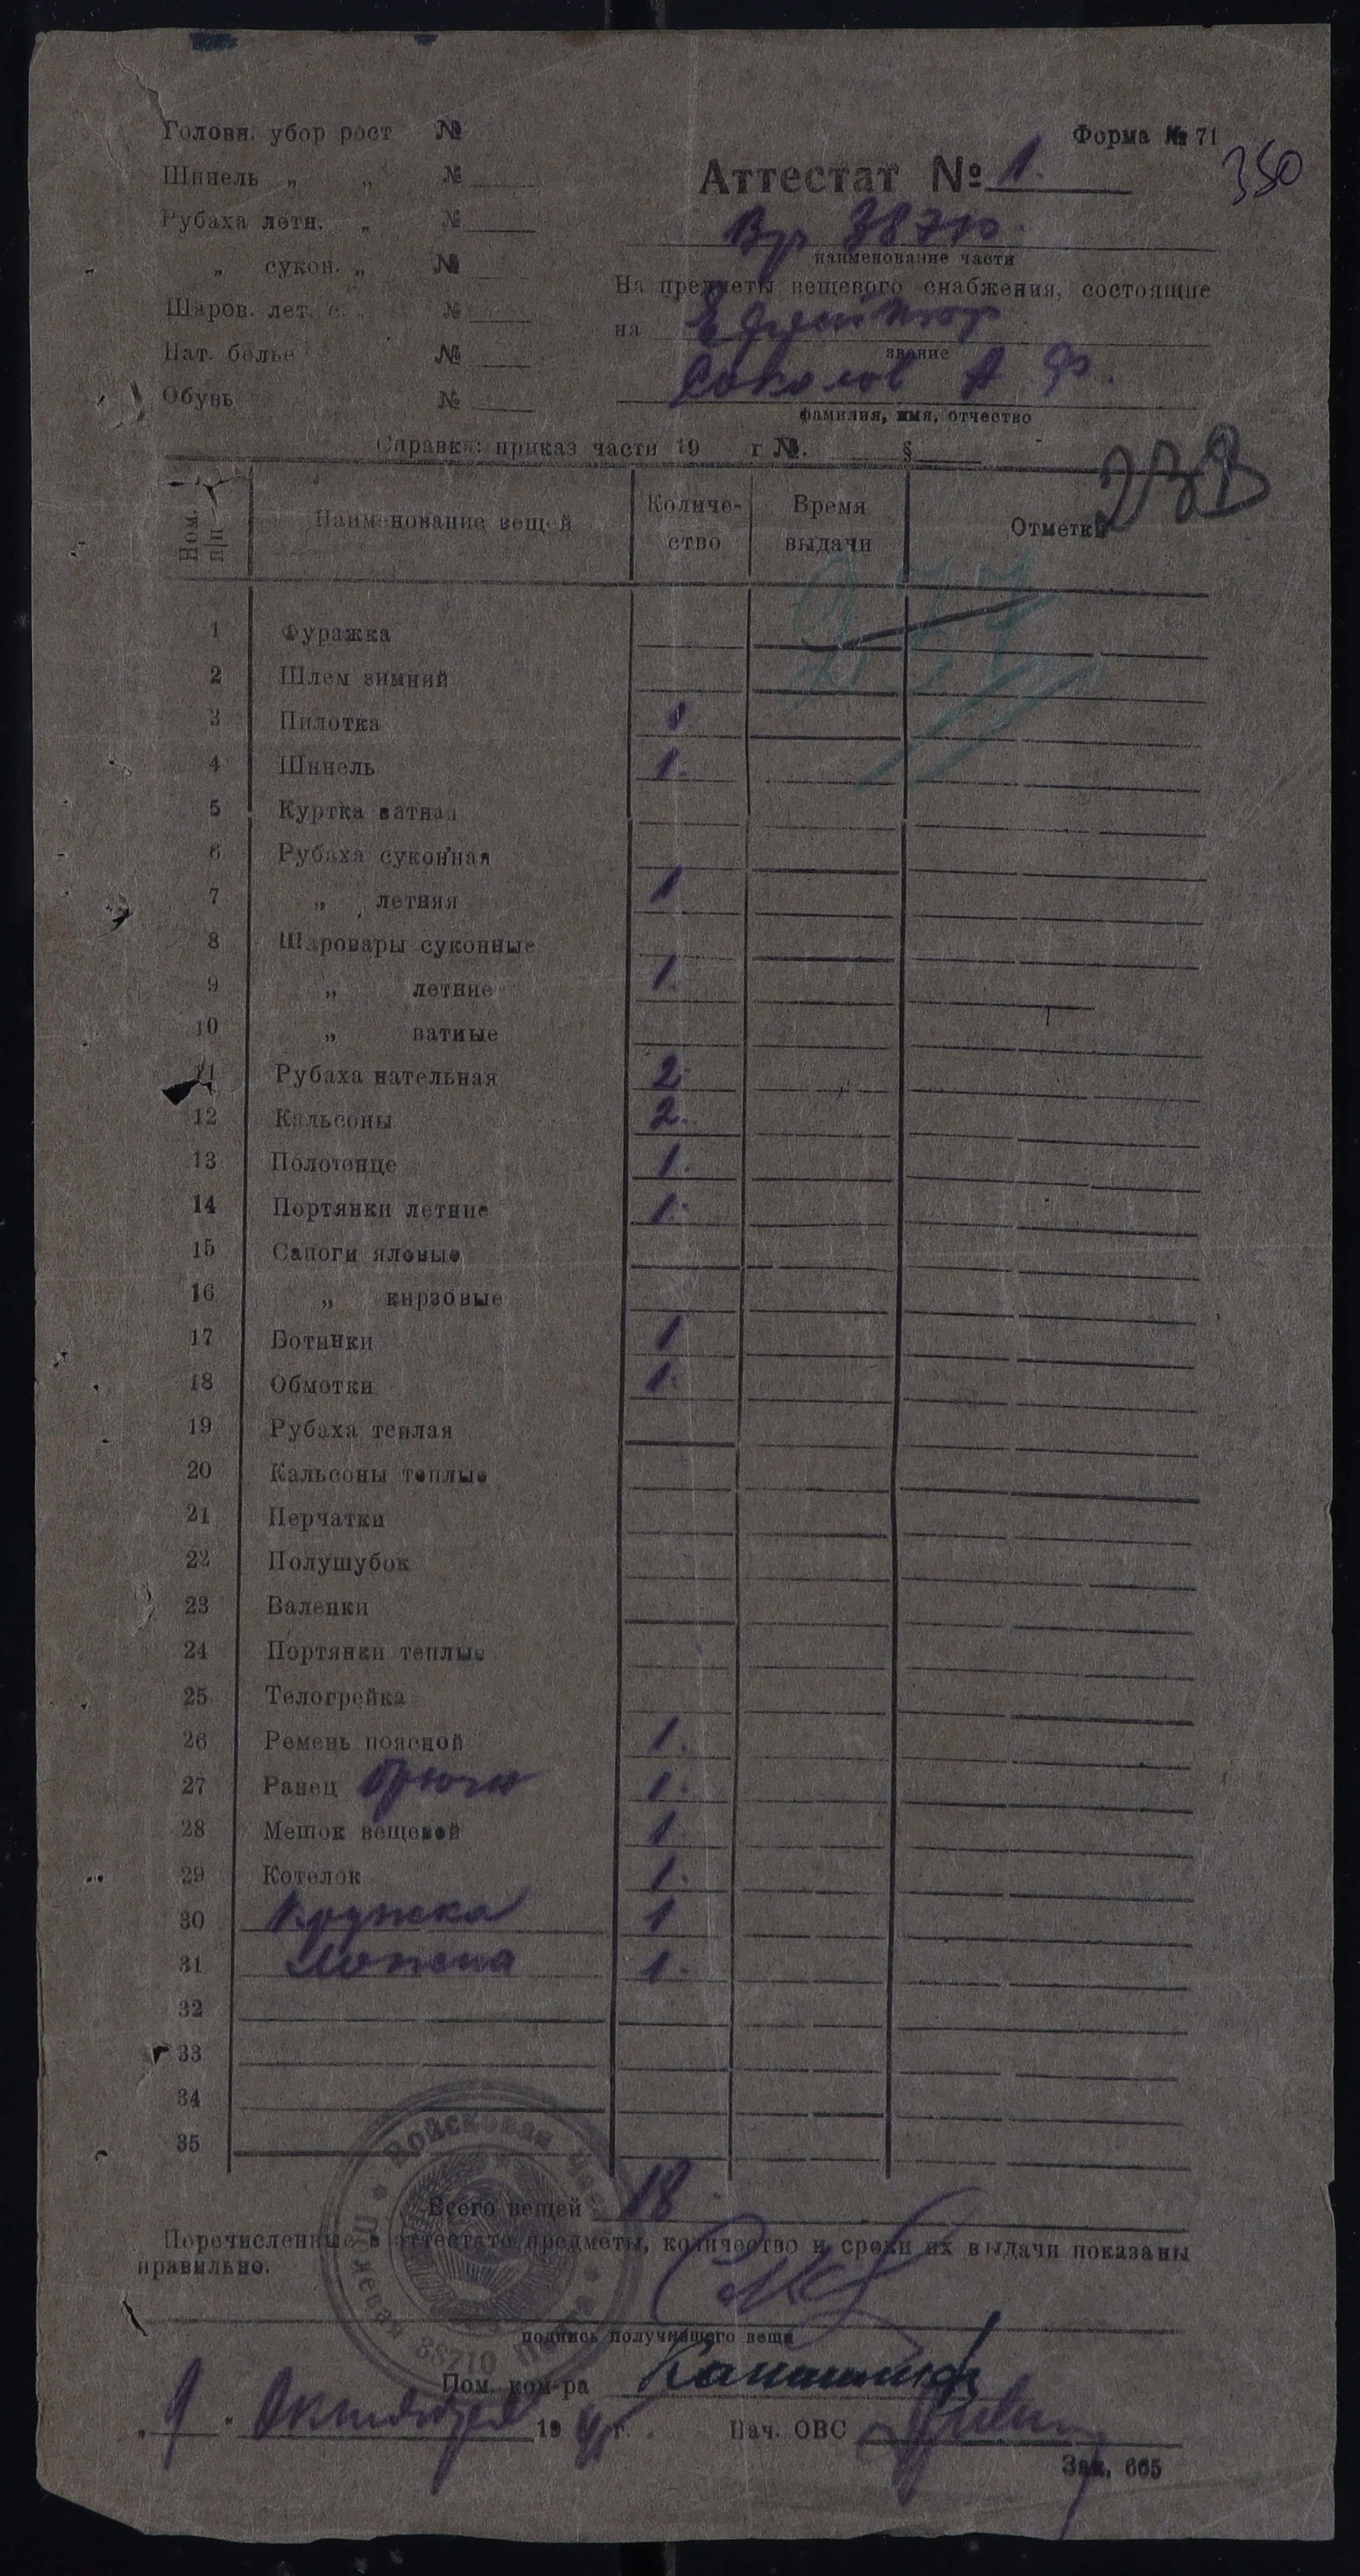 Форма № 71
350
Головн. убор рост №
Шинель „ „ №
Рубаха летн. „ №
„ сукон. „ №
Шаров. лет. с. №
Нат. белье №
Обувь №
Аттестат № 1.
38710.
наименование части
На предметы вещевого снабжения, состоящие
на Ефрейтор
звание
Соколов А Ф.
фамилия, имя, отчество
Справка: приказ части 19 г №. §
Ном. п/п Наименование вещей Количество Время выдачи Отметки
1 Фуражка
2 Шлем зимний
3 Пилотка 1
4 Шинель 1.
5 Куртка ватная
6 Рубаха суконная
7 „ летняя 1
8 Шаровары суконные
9 „ летние 1.
10 „ ватные
11 Рубаха нательная 2.
12 Кальсоны 2.
13 Полотенце 1.
14 Портянки летние 1.
15 Сапоги яловые
16 „ кирзовые
17 Ботинки 1
18 Обмотки 1.
19 Рубаха теплая
20 Кальсоны теплые
21 Перчатки
22 Полушубок
23 Валенки
24 Портянки теплые
25 Телогрейка
26 Ремень поясной 1.
27 Ранец брючн 1.
28 Мешок вещевой 1
29 Котелок 1.
30 Кружка 1
31 Ложка 1.
32
33
34
35
Войсковая Часть Полевая Почта 38710
Всего вещей 18.
Перечисленные в аттестате предметы, количество и сроки их выдачи показаны
правильно.
подпись получившего вещи
Пом. ком-ра
„ 9 " Октября 19 г. Нач. ОВС
Зак. 665